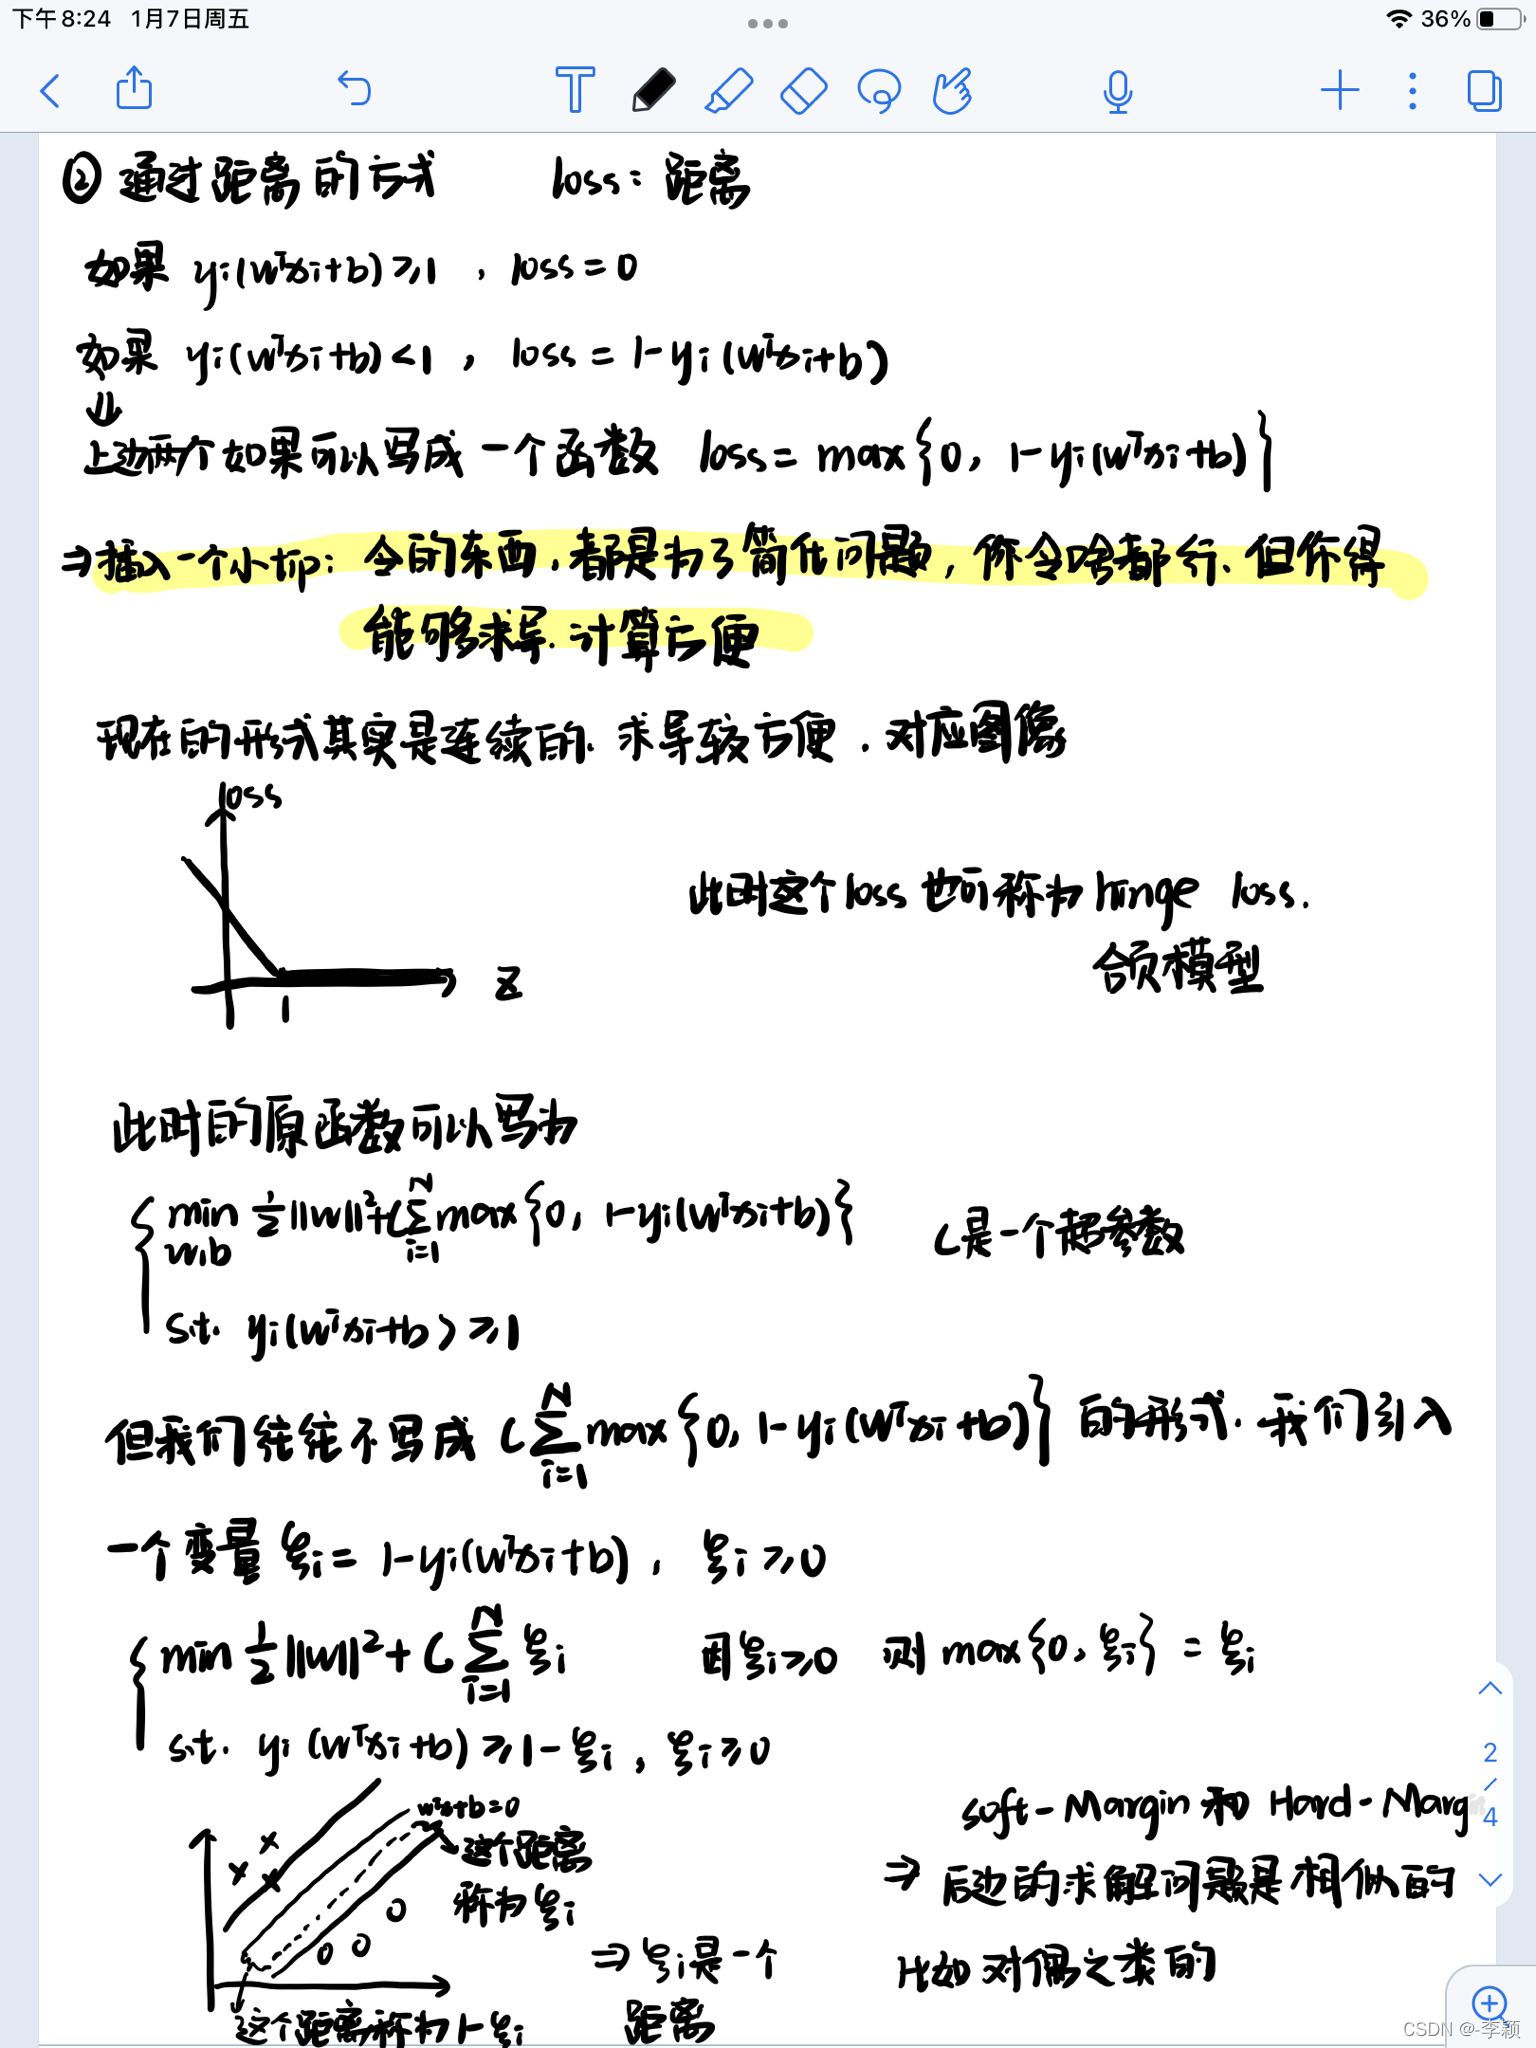 下午8:24 1月7日周五
36%
② 通过距离的方式 loss: 距离
如果 yi(wᵀxi+b)≥1 , loss=0
如果 yi(wᵀxi+b)<1 , loss = 1-yi(wᵀxi+b)
⇓
上边两个如果可以写成一个函数 loss= max{0, 1-yi(wᵀxi+b)}
⇒插入一个小tip: 令的东西,都是为了简化问题,你令啥都行.但你得
能够求导.计算方便
现在的形式其实是连续的.求导较方便.对应图像
loss
1
z
此时这个loss也可称为hinge loss.
合页模型
此时的原函数可以写为
min w,b ½||w||²+C∑ᵢ₌₁ᴺ max{0, 1-yi(wᵀxi+b)} C是一个超参数
s.t. yi(wᵀxi+b)≥1
但我们往往不写成 C∑ᵢ₌₁ᴺ max{0, 1-yi(wᵀxi+b)} 的形式.我们引入
一个变量 ξi= 1-yi(wᵀxi+b), ξi≥0
min ½||w||²+ C∑ᵢ₌₁ᴺ ξi 因ξi≥0 则 max{0, ξi} = ξi
s.t. yi (wᵀxi+b)≥1-ξi, ξi≥0
wᵀx+b=0
这个距离
称为 ξi
这个距离称为1-ξi
⇒ ξi是一个
距离
soft-Margin 和 Hard-Marg
⇒ 后边的求解问题是相似的
比如对偶之类的
2
/
4
CSDN @-李颖